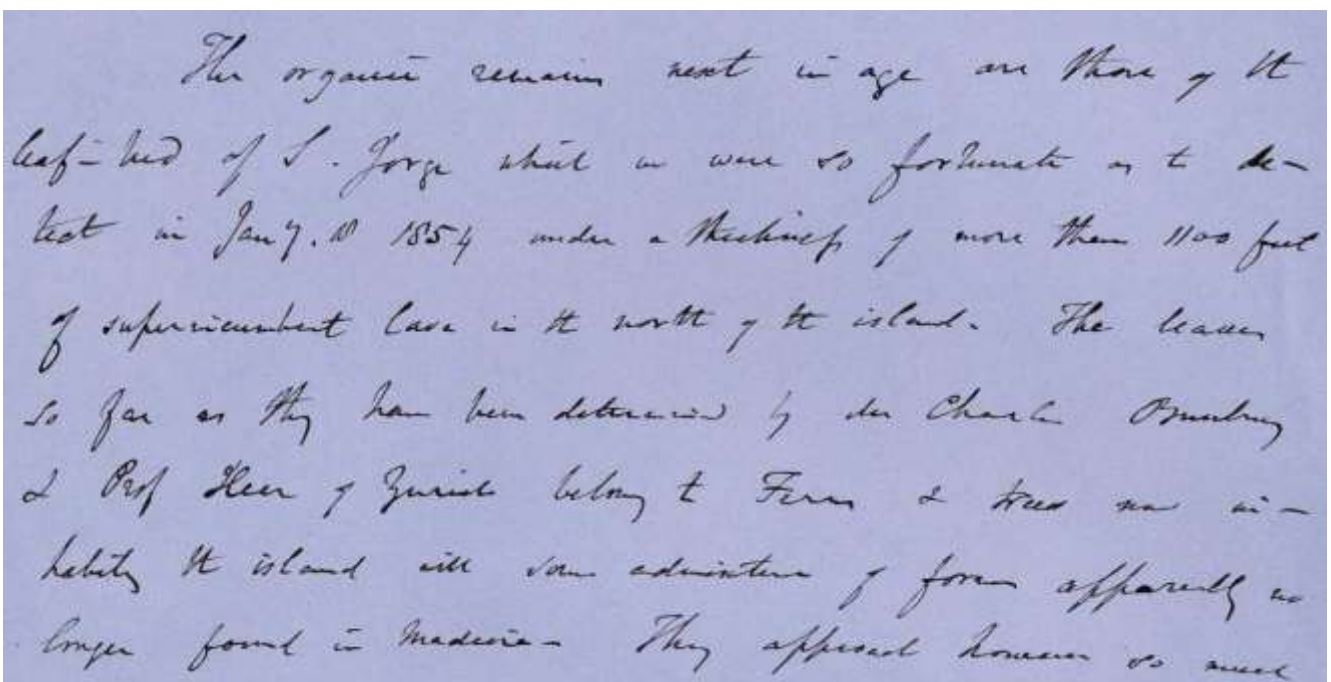 The organic remains next in age are those of the
leaf-bed of S. Jorge which we were so fortunate as to de-
tect in Jany. 1854 under a thickness of more than 1100 feet
of superincumbent lava in the north of the island. The leaves
so far as they have been determined by Sir Charles Bunbury
& Prof Heer of Zurich belong to Ferns & trees now in-
habiting the island with some admixture of forms apparently no
longer found in Madeira - They approach however so much